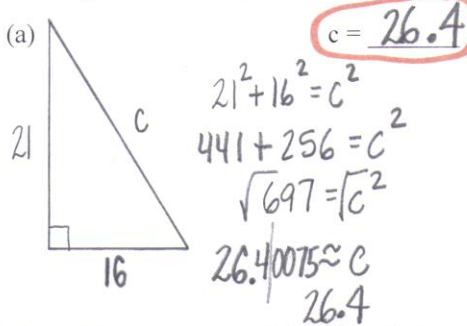 (a)
c = 26.4
21² + 16² = c²
21
c
441 + 256 = c²
√697 = √c²
16
26.40075 ≈ c
26.4